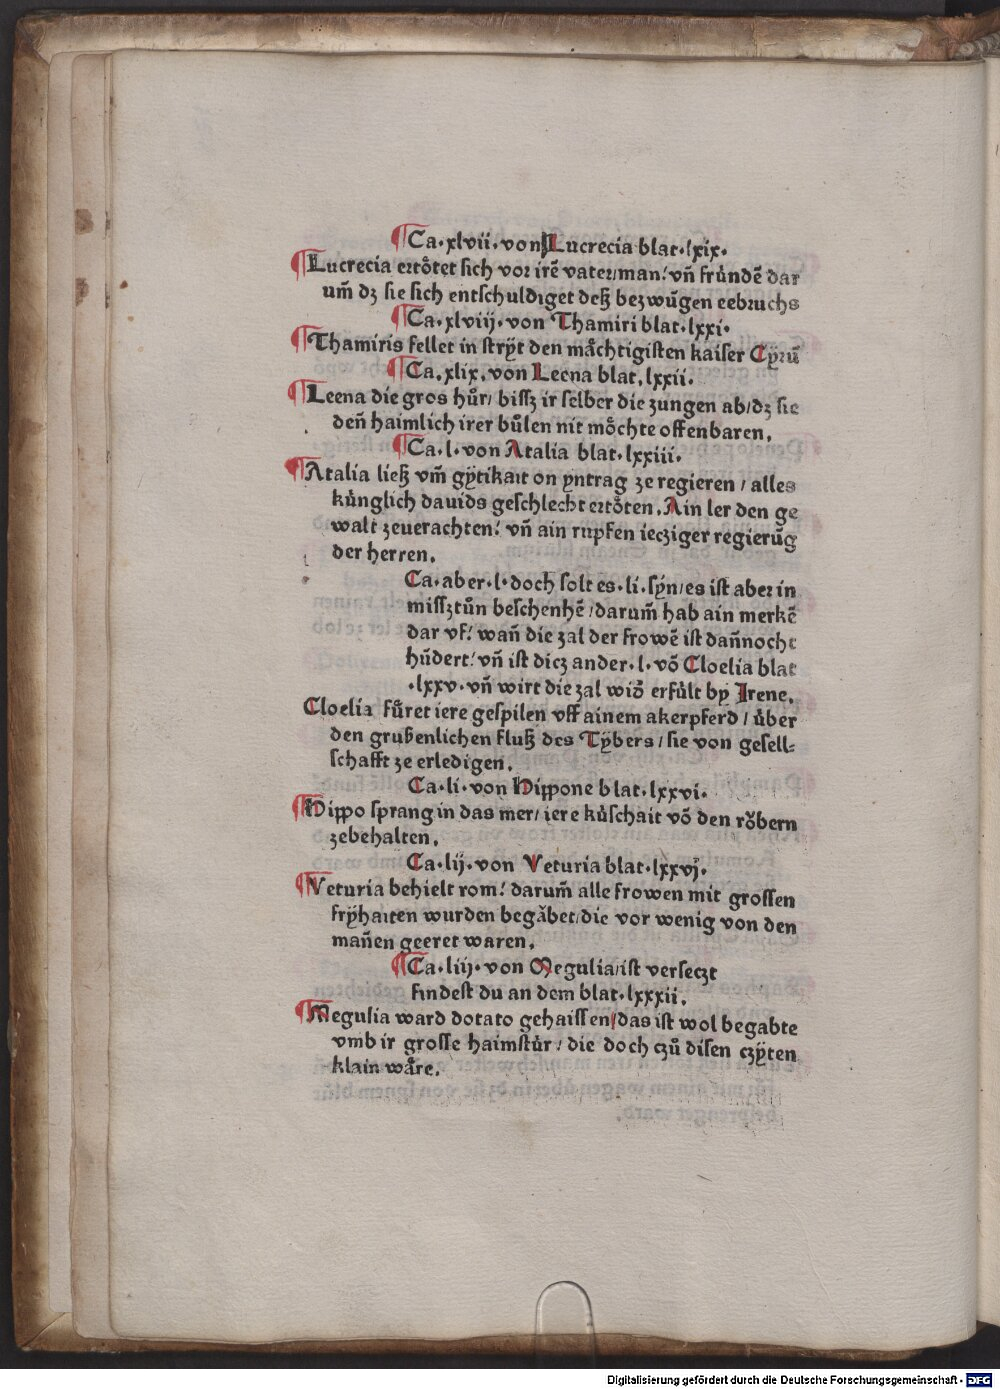 ¶Ca·xlvii·von Lucrecia blat·lxix·
¶Lucrecia ertoͤtet sich vor irē vater/man/ vn̄ fruͤndē dar
um̄ dz sie sich entschuldiget deß bezwūgen eebruchs
¶Ca·xlviij·von Thamiri blat·lxxi·
¶Thamiris fellet in strÿt den maͤchtigisten kaiser Cÿrū
¶Ca.xlix.von Leena blat.lxxii.
¶Leena die gros huͦr/ bissz ir selber die zungen ab/dz sie
den̄ haimlich irer buͦlen nit moͤchte offenbaren.
¶Ca·l·von Atalia blat·lxxiii.
¶Atalia ließ vm̄ gÿtikait on yntrag ze regieren / alles
kuͤnglich dauids geschlecht ertoͤten.Ain ler den ge
walt zeuerachten/ vn̄ ain rupfen iecziger regierūg
der herren.
Ca·aber·l·doch solt es·li·sÿn/es ist aber in
missztuͦn beschenhē /darum̄ hab ain merkē
dar vf/ wan̄ die zal der frowē ist dan̄nocht
hūdert/ vn̄ ist dicz ander·l·vō Cloelia blat
·lxxv·vn̄ wirt die zal widͦ erfuͤlt by Irene.
Cloelia fuͤret iere gespilen vff ainem akerpferd / uͤber
den grußenlichen fluß des Tÿbers / sie von gesell⸗
schafft ze erledigen.
Ca·li·von Hippone blat·lxxvi·
¶Hippo sprang in das mer/ iere kuͤschait vō den roͤbern
zebehalten.
Ca·lij·von Veturia blat·lxxvj·
¶Veturia behielt rom/ darum̄ alle frowen mit grossen
frÿhaiten wurden begaͤbet/die vor wenig von den
man̄en geeret waren.
¶Ca·liij·von Megulia/ist verseczt
findest du an dem blat·lxxxii.
¶Megulia ward dotato gehaissen/das ist wol begabte
vmb ir grosse haimstuͤr / die doch czuͦ disen czÿten
klain waͤre.
Digitalisierung gefördert durch die Deutsche Forschungsgemeinschaft - DFG